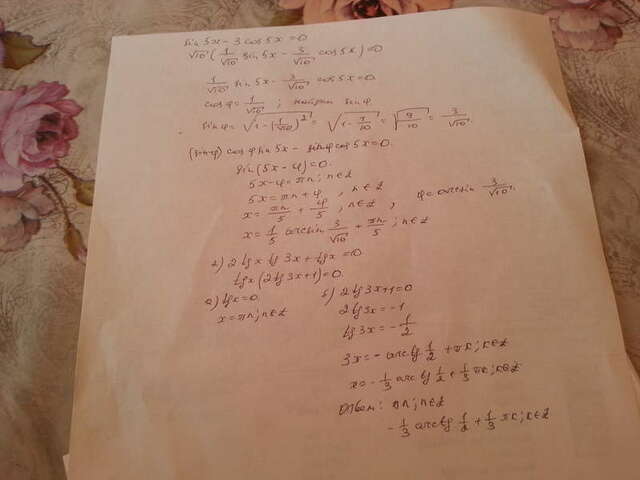 sin 5x − 3 cos 5x = 0
√10 (1/√10 sin 5x − 3/√10 cos 5x) = 0
1/√10 sin 5x − 3/√10 cos 5x = 0
cos φ = 1/√10 ; найдём sin φ
sin φ = √(1 − (1/√10)²) = √(1 − 1/10) = √(9/10) = 3/√10.
cos φ sin 5x − sin φ cos 5x = 0.
sin (5x − φ) = 0.
5x − φ = πn; n∈Z
5x = πn + φ , n∈Z
x = πn/5 + φ/5 , n∈Z , φ = arcsin 3/√10.
x = 1/5 arcsin 3/√10 + πn/5 ; n∈Z
2) 2 tg x tg 3x + tg x = 0
tg x (2 tg 3x + 1) = 0
а) tg x = 0.
x = πn; n∈Z
б) 2 tg 3x + 1 = 0
2 tg 3x = −1
tg 3x = − 1/2
3x = − arctg 1/2 + πk; k∈Z
x = − 1/3 arctg 1/2 + 1/3 πk; k∈Z
Ответ: πn; n∈Z
− 1/3 arctg 1/2 + 1/3 πk; k∈Z